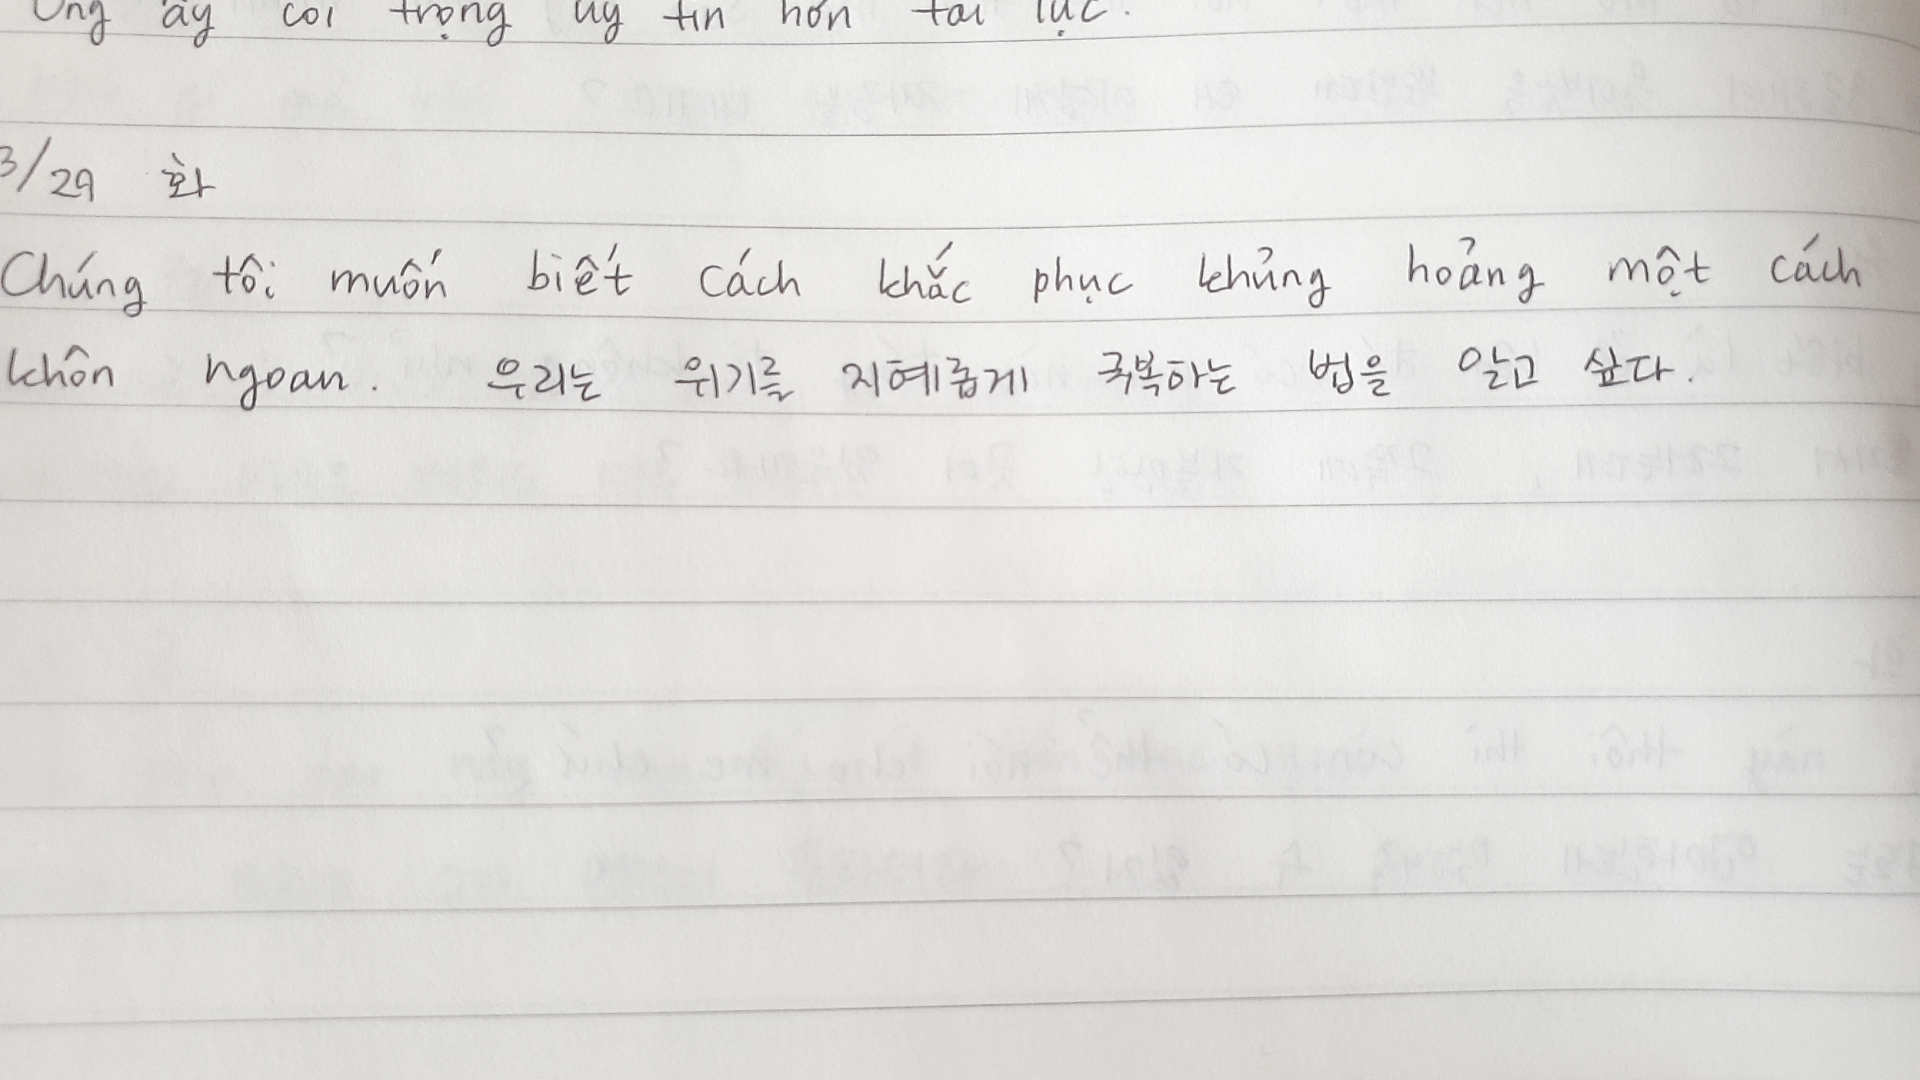 Ông ấy coi trọng uy tín hơn tài lực.
3/29 화
Chúng tôi muốn biết cách khắc phục khủng hoảng một cách
khôn ngoan. 우리는 위기를 지혜롭게 극복하는 법을 알고 싶다.